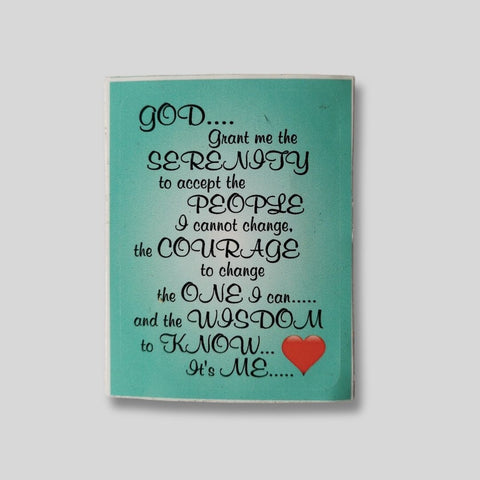 GOD....
Grant me the
SERENITY
to accept the
PEOPLE
I cannot change,
the COURAGE
to change
the ONE I can.....
and the WISDOM
to KNOW...
It's ME.....